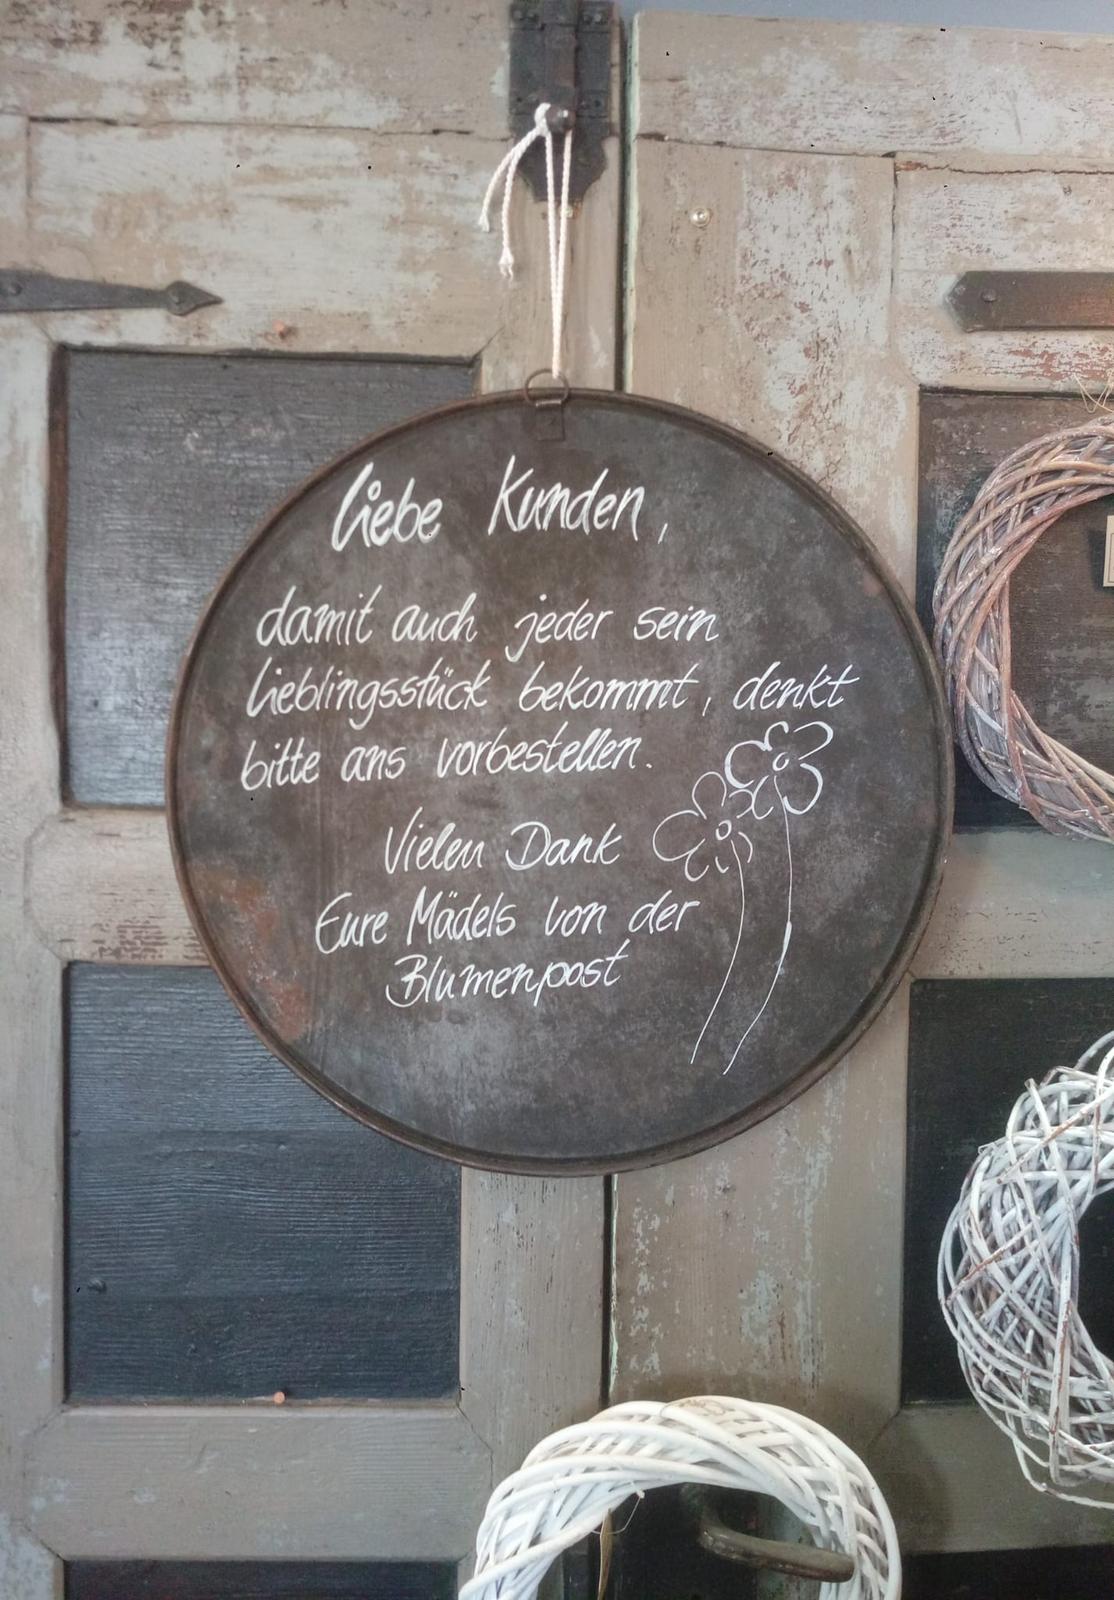 Liebe Kunden,
damit auch jeder sein
Lieblingsstück bekommt, denkt
bitte ans vorbestellen.
Vielen Dank
Eure Mädels von der
Blumenpost